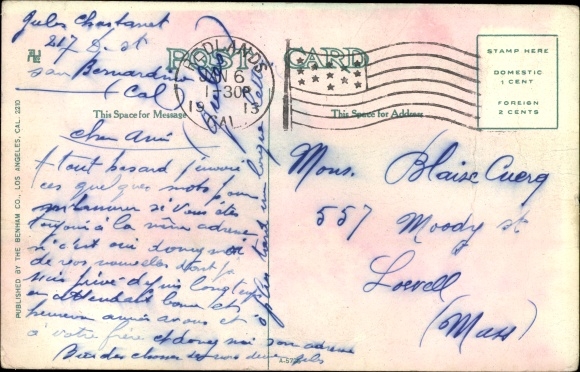 Jules Chastanet
217 D. st
San Bernardino
Cal
POST CARD
REDLANDS
JUN 6
1-30P
1913
CAL.
STAMP HERE
DOMESTIC
1 CENT
FOREIGN
2 CENTS
This Space for Message
This Space for Address
Cher Ami
A tout hasard j'envoie
ces quelques mots pour
m'informer si vous êtes
toujours à la même adresse
si c'est oui donnez moi
de vos nouvelles dont je
suis privé depuis longtemps
en attendant bonne et
heureuse année à vous et
à votre frère et donnez moi son adresse
Bien des choses de vos deux
plus tard une longue
Mons. Blaise Cuerq
557 Moody st
Lowell
(Mass)
PUBLISHED BY THE BENHAM CO., LOS ANGELES, CAL. 2210